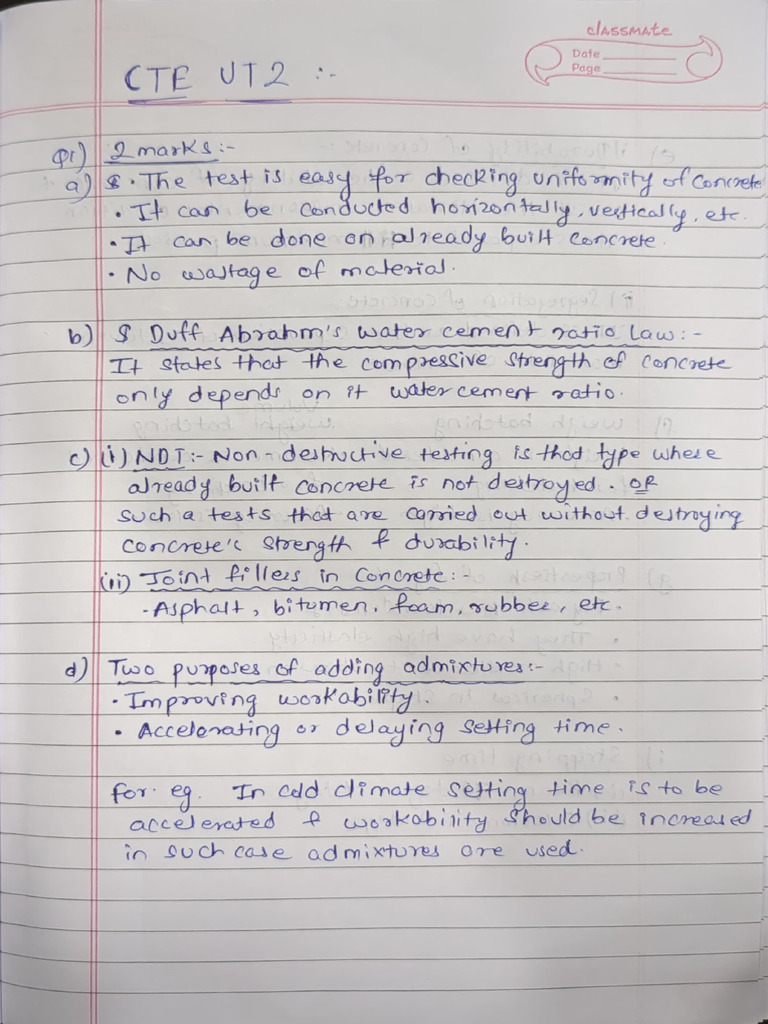 classmate
Date
Page
CTE UT2 :-
Q1) 2 marks :-
a) • The test is easy for checking uniformity of concrete
• It can be conducted horizontally, vertically, etc.
• It can be done on already built concrete.
• No wastage of material.
b) Duff Abrahm's water cement ratio law :-
It states that the compressive strength of concrete
only depends on it water cement ratio.
c) (i) NDT :- Non-destructive testing is that type where
already built concrete is not destroyed. OR
such a tests that are carried out without destroying
concrete's strength & durability.
(ii) Joint fillers in concrete :-
- Asphalt, bitumen, foam, rubber, etc.
d) Two purposes of adding admixtures :-
• Improving workability.
• Accelerating or delaying setting time.
for eg. In cold climate setting time is to be
accelerated & workability should be increased
in such case admixtures are used.